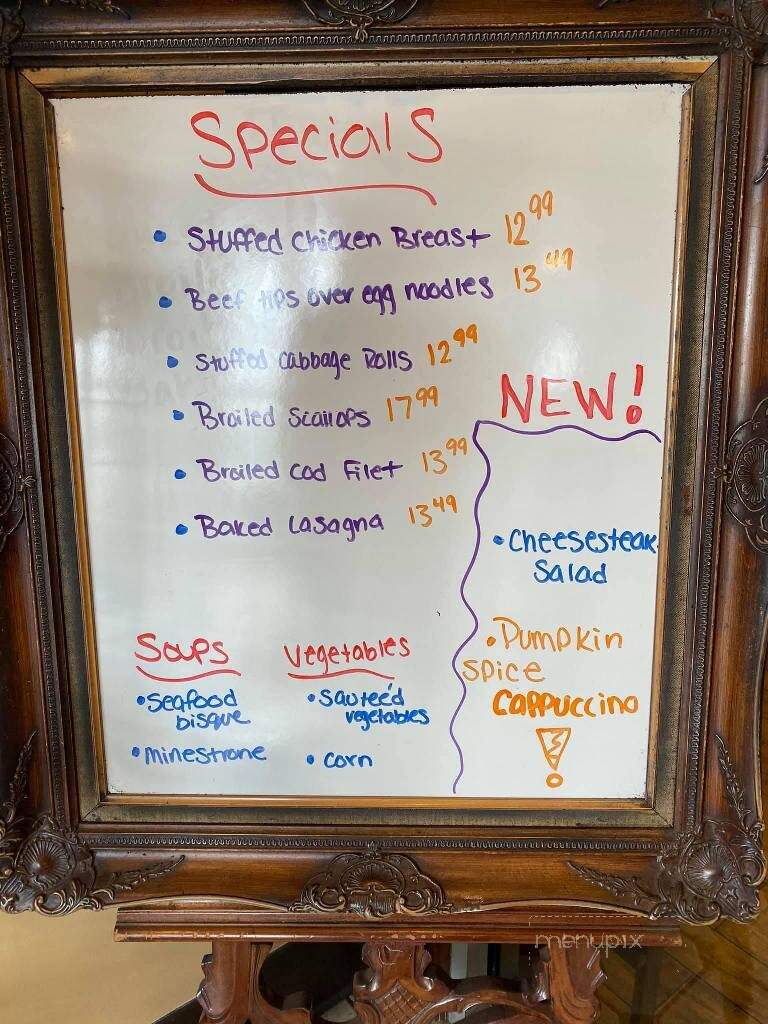 Specials
• Stuffed Chicken Breast 12.99
• Beef tips over egg noodles 13.49
• Stuffed Cabbage Rolls 12.99
• Broiled Scallops 17.99
• Broiled Cod Filet 13.99
• Baked Lasagna 13.49
NEW!
• Cheesesteak
Salad
• Pumpkin
Spice
Cappuccino
!
Soups
• Seafood
bisque
• minestrone
Vegetables
• Sauteé'd
vegetables
• corn
menupix